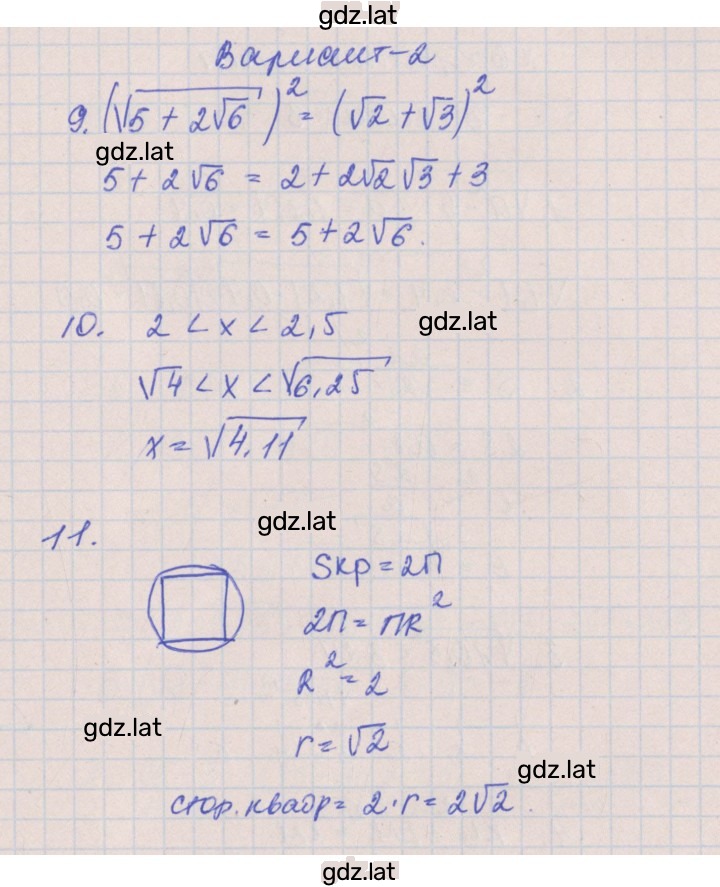 gdz.lat
Вариант-2
9. (√(5 + 2√6))² = (√2 + √3)²
gdz.lat
5 + 2√6 = 2 + 2√2√3 + 3
5 + 2√6 = 5 + 2√6.
10. 2 < x < 2,5
gdz.lat
√4 < x < √6,25
x = √4,11
gdz.lat
11.
Sкр = 2П
2П = ПR²
R² = 2
gdz.lat
r = √2
gdz.lat
стор. квадр = 2·r = 2√2.
gdz.lat